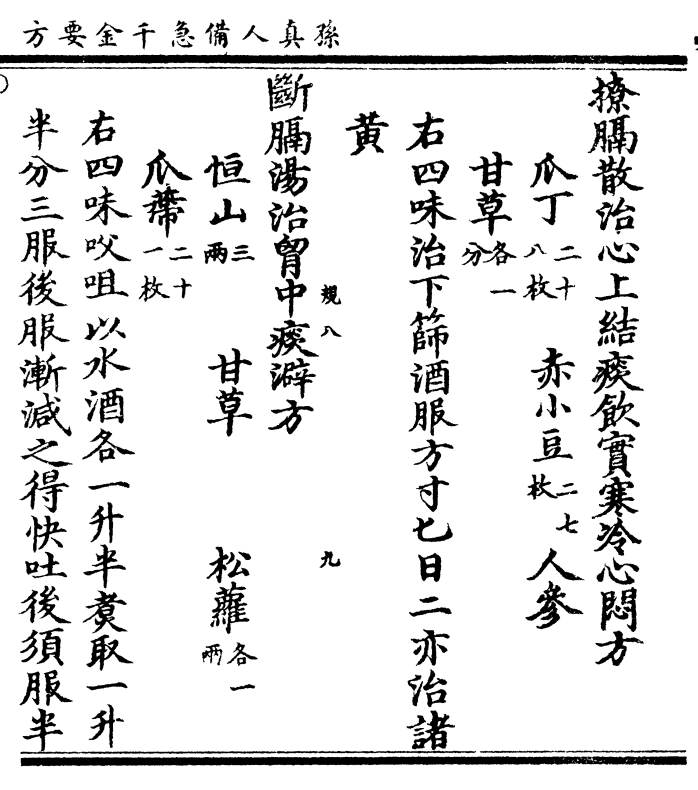 孫真人備急千金要方
撩膈散治心上結痰飲實寒冷心悶方
瓜丁二十八枚　赤小豆二七枚　人參
甘草各一分
右四味治下篩酒服方寸匕日二亦治諸
黃
規八　九
斷膈湯治胷中痰澼方
恒山三兩　甘草　松蘿各一兩
瓜蔕二十一枚
右四味㕮咀以水酒各一升半煑取一升
半分三服後服漸減之得快吐後須服半